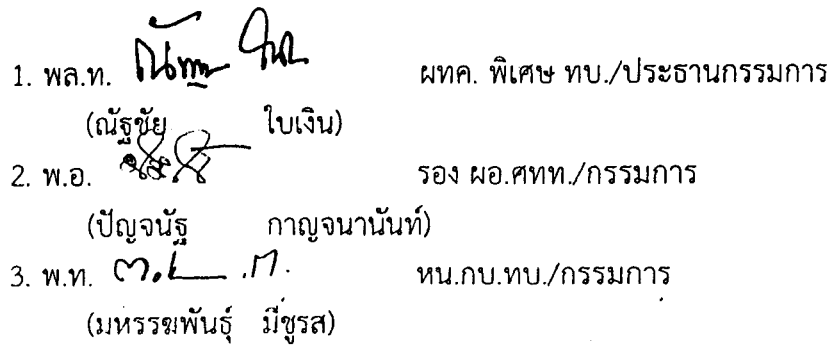 1. พล.ท. ผทค. พิเศษ ทบ./ประธานกรรมการ
(ณัฐชัย ใบเงิน)
2. พ.อ. รอง ผอ.ศทท./กรรมการ
(ปัญจนัฐ กาญจนานันท์)
3. พ.ท. หน.กบ.ทบ./กรรมการ
(มหรรฆพันธุ์ มีชูรส)